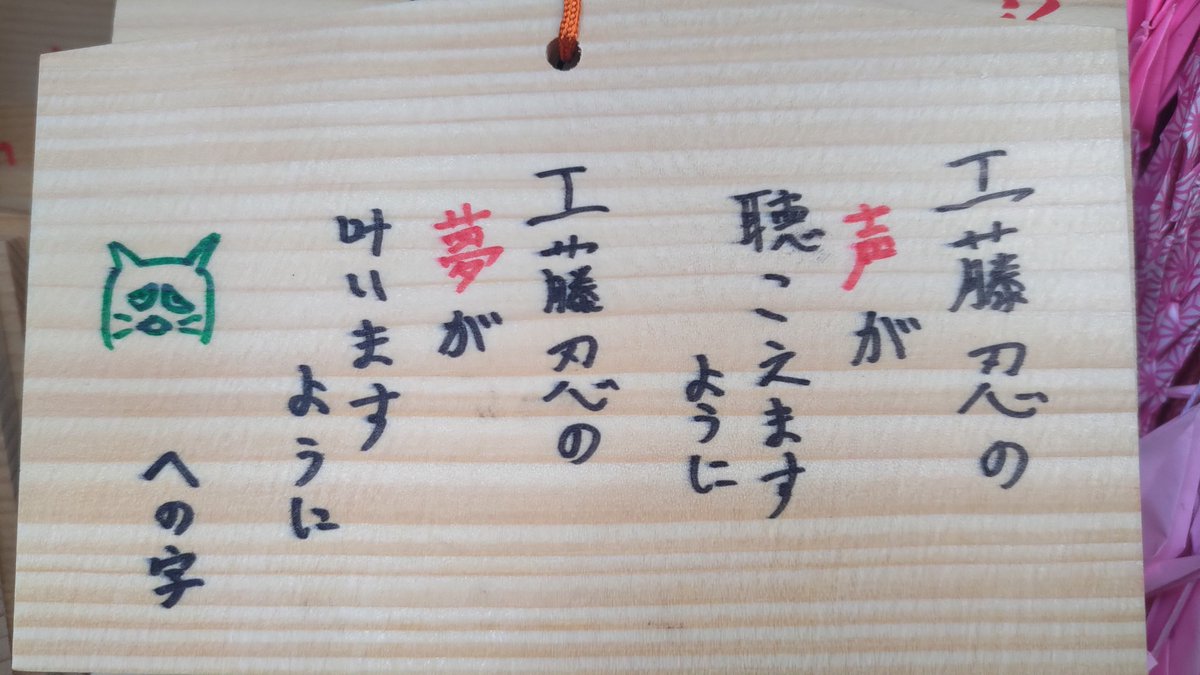 工藤忍の
声が
聴こえます
ように
工藤忍の
夢が
叶います
ように
への字